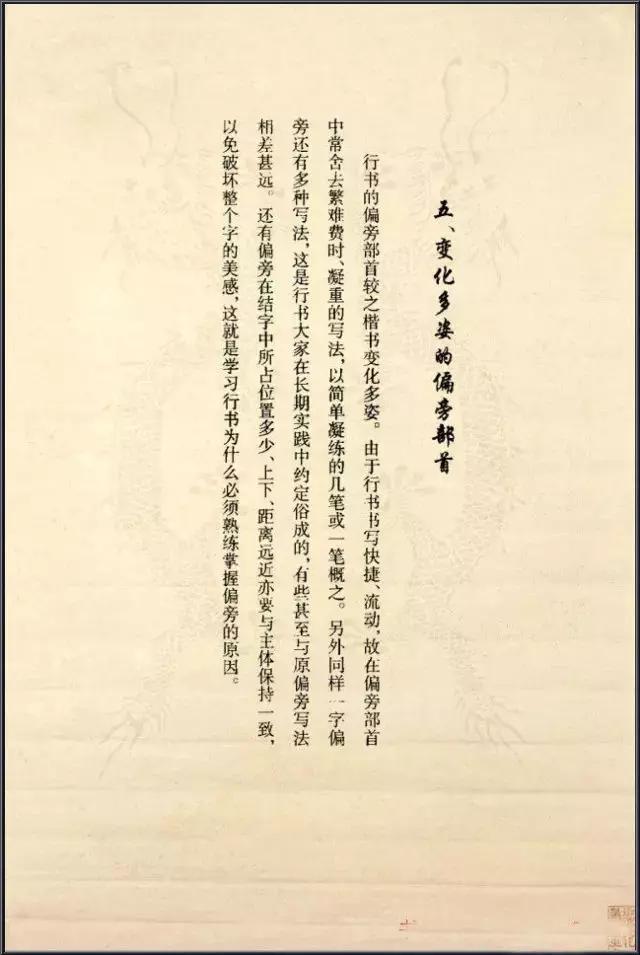 五、变化多姿的偏旁部首
行书的偏旁部首较之楷书变化多姿。由于行书书写快捷、流动，故在偏旁部首
中常舍去繁难费时、凝重的写法，以简单凝练的几笔或一笔概之。另外同样一字偏
旁还有多种写法，这是行书大家在长期实践中约定俗成的，有些甚至与原偏旁写法
相差甚远。还有偏旁在结字中所占位置多少、上下、距离远近亦要与主体保持一致，
以免破坏整个字的美感，这就是学习行书为什么必须熟练掌握偏旁的原因。